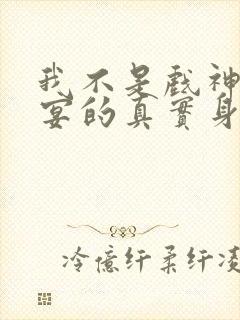 我不是戲神
宴的真實身
冷億纤柔纤凌